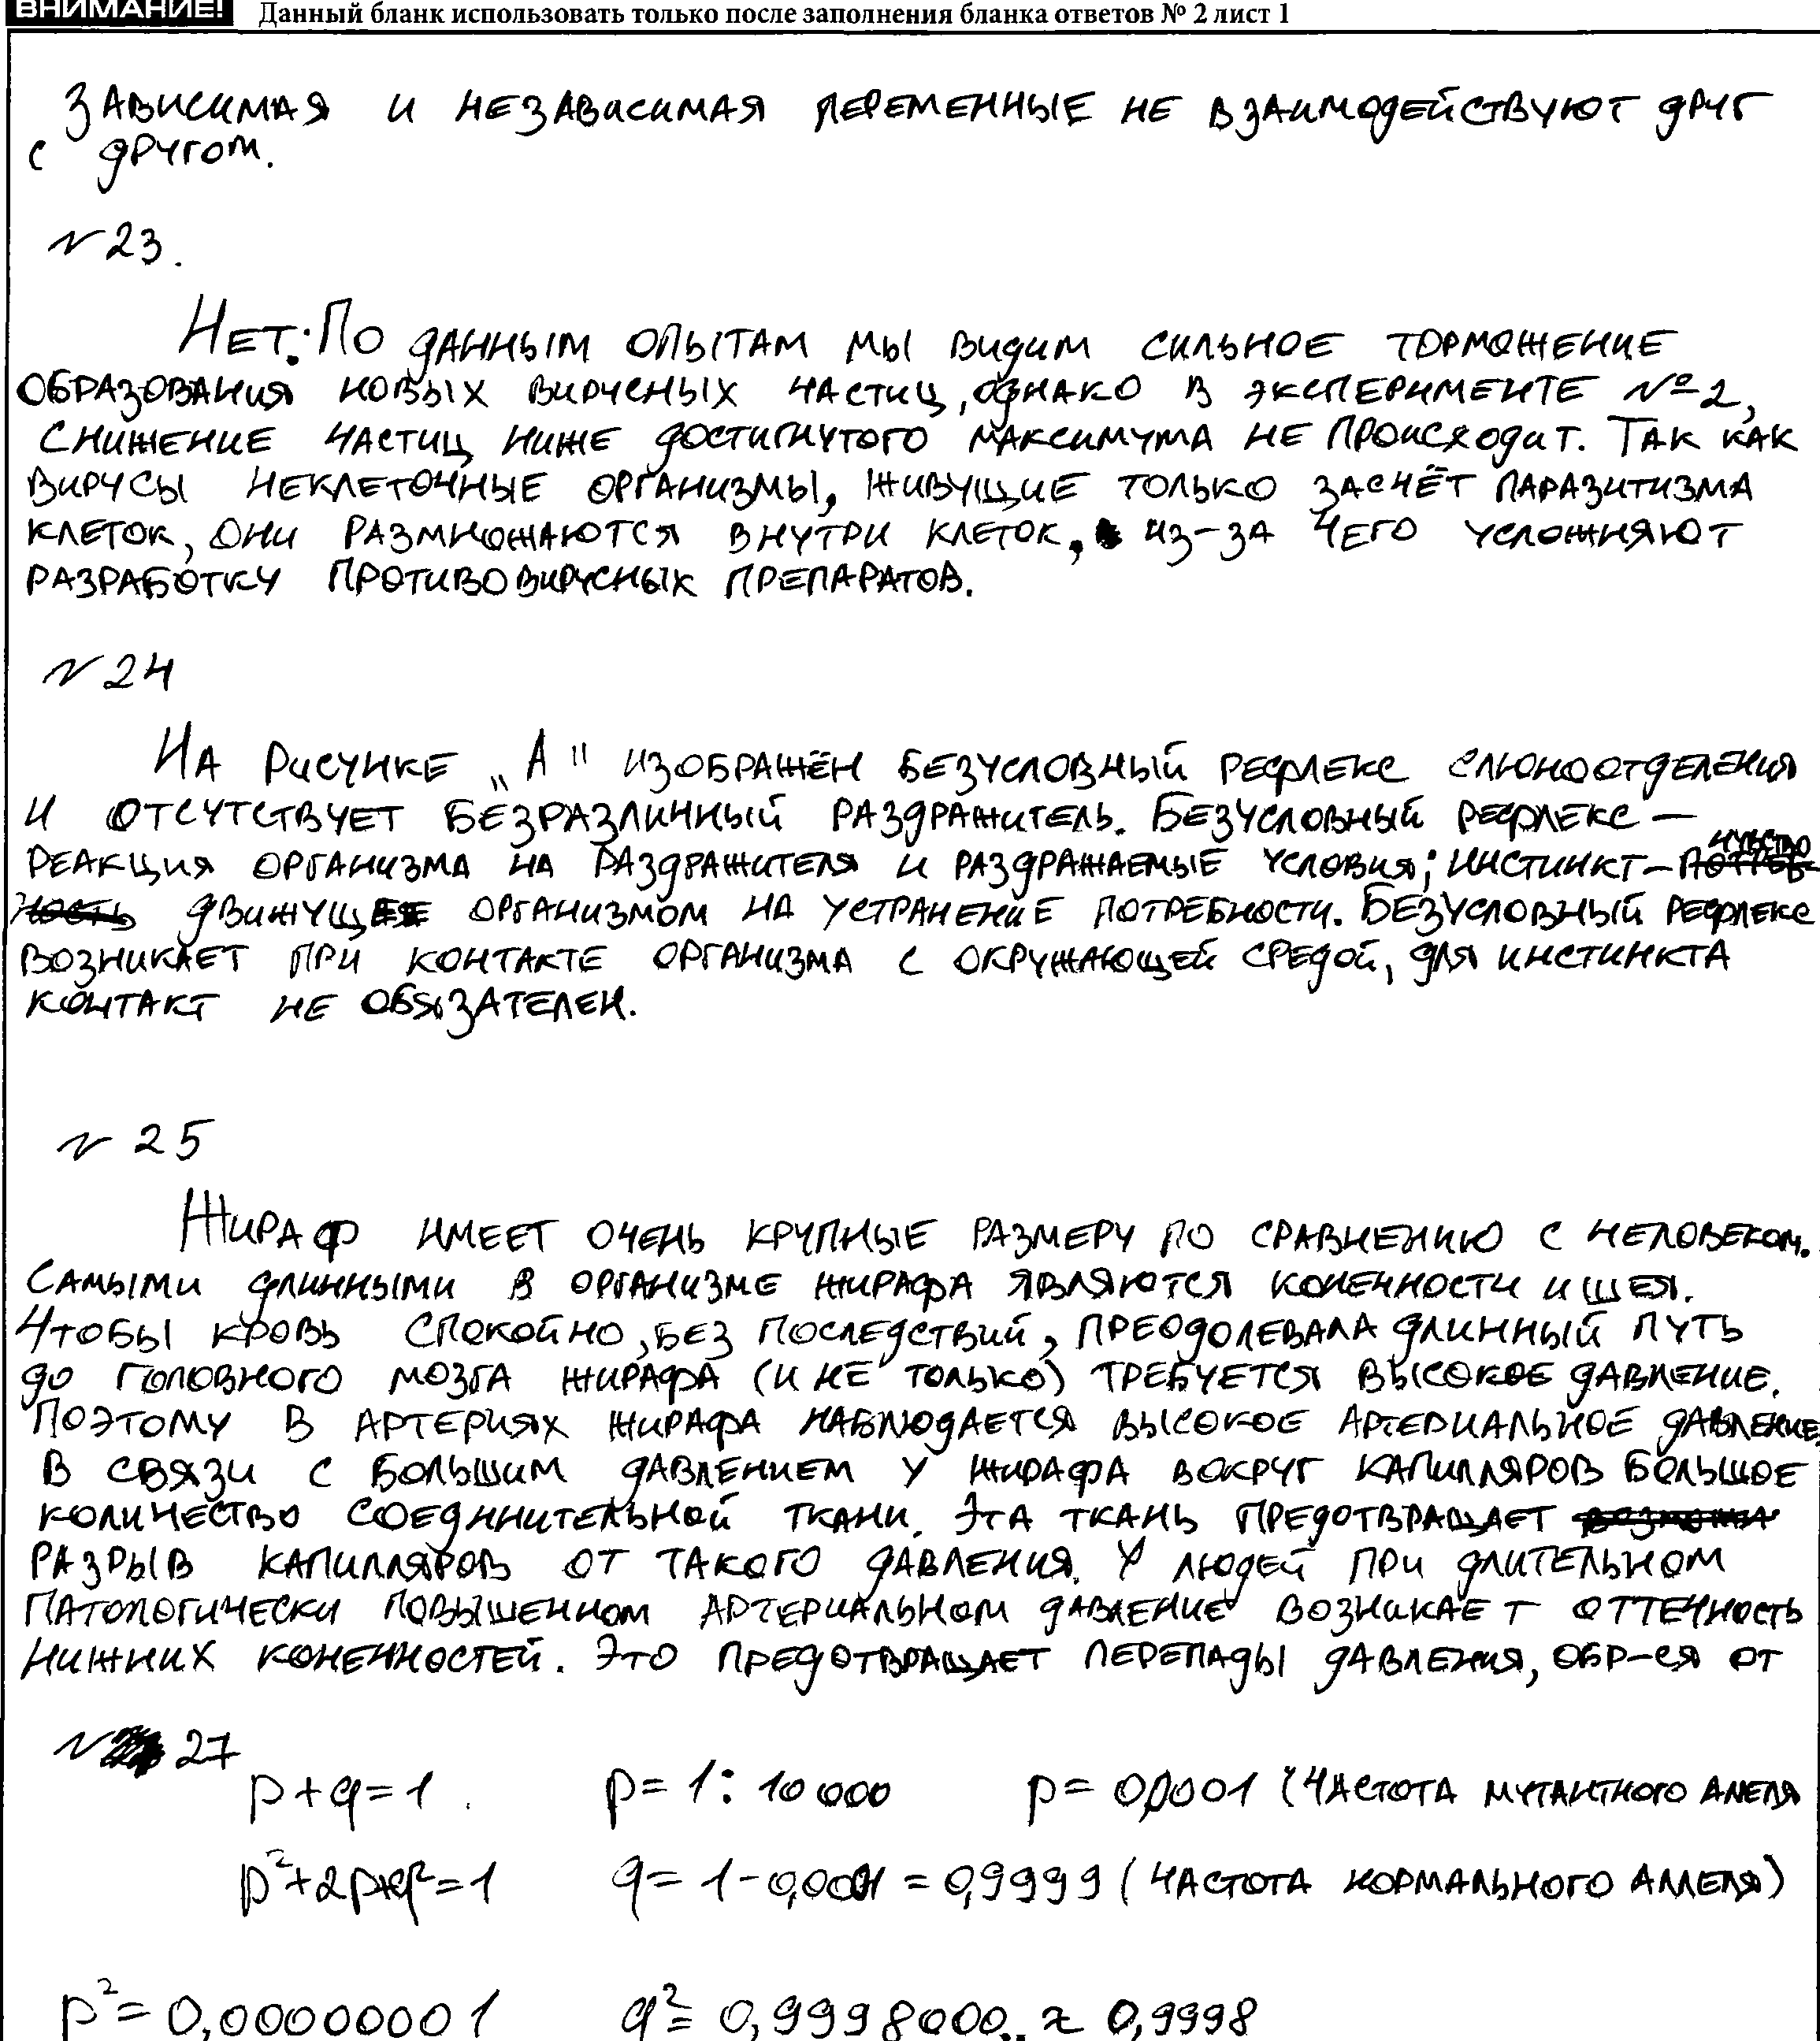 ВНИМАНИЕ! Данный бланк использовать только после заполнения бланка ответов № 2 лист 1
Зависимая и независимая переменные не взаимодействуют друг
с другом.
№23.
Нет. По данным опытам мы видим сильное торможение
образования новых вирусных частиц, однако в эксперименте №2,
снижение частиц ниже достигнутого максимума не происходит. Так как
вирусы неклеточные организмы, живущие только засчёт паразитизма
клеток, они размножаются внутри клеток, из-за чего усложняют
разработку противовирусных препаратов.
№24
На рисунке „А" изображён безусловный рефлекс слюноотделения
и отсутствует безразличный раздражитель. Безусловный рефлекс —
реакция организма на раздражителя и раздражаемые условия; инстинкт – чувство
движущее организмом на устранение потребности. Безусловный рефлекс
возникает при контакте организма с окружающей средой, для инстинкта
контакт не обязателен.
№25
Жираф имеет очень крупные размеру по сравнению с человеком.
Самыми длинными в организме жирафа являются конечности и шея.
Чтобы кровь спокойно, без последствий, преодолевала длинный путь
до головного мозга жирафа (и не только) требуется высокое давление.
Поэтому в артериях жирафа наблюдается высокое артериальное давление.
В связи с большим давлением у жирафа вокруг капилляров большое
количество соединительной ткани. Эта ткань предотвращает
разрыв капилляров от такого давления. У людей при длительном
патологически повышенном артериальном давление возникает оттечность
нижних конечностей. Это предотвращает перепады давления, обр-ся от
№27
p+q=1. p=1:10000 p=0,0001 (частота мутантного алеля
p²+2pq+q²=1 q=1-0,0001=0,9999 (частота нормального аллеля)
p²=0,00000001 q²=0,9998000.. ≈ 0,9998